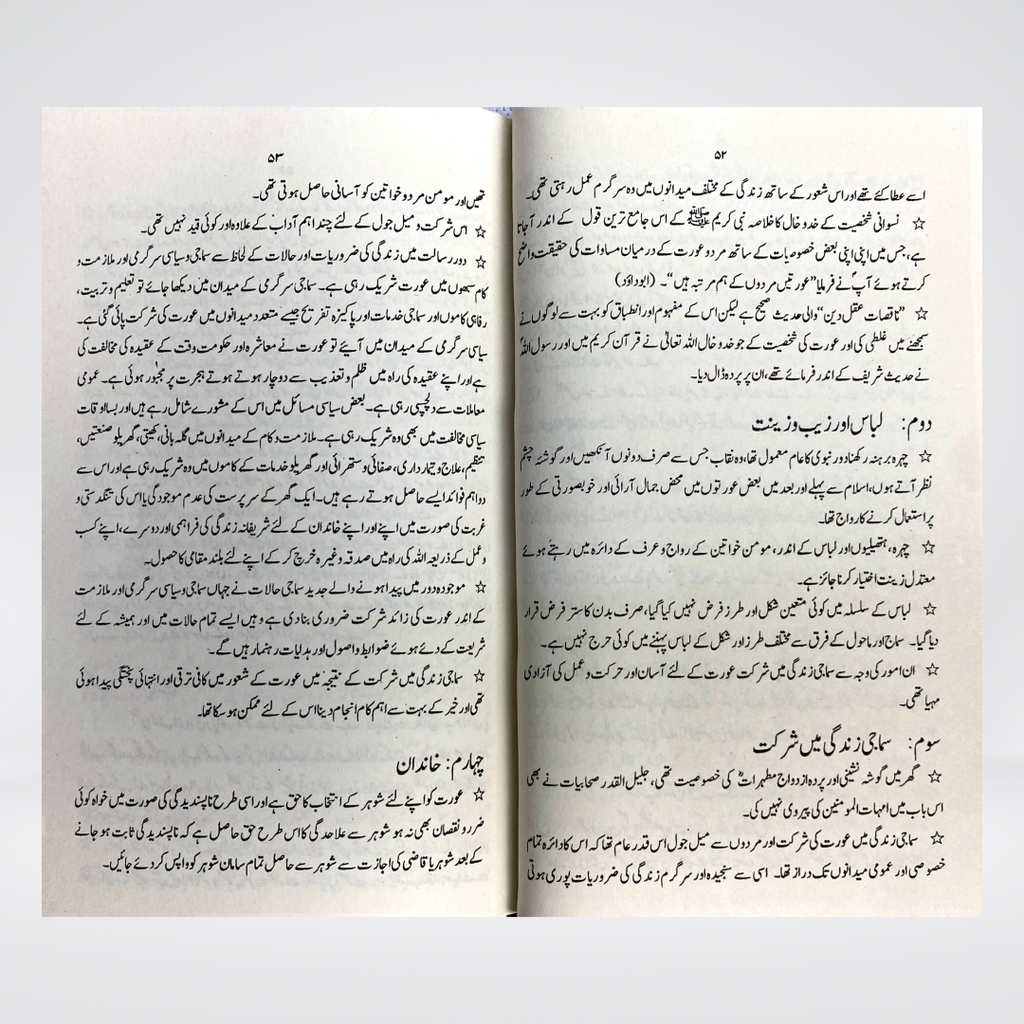 ۵۲
اسے عطا کئے تھے اور اس شعور کے ساتھ زندگی کے مختلف میدانوں میں وہ سرگرم عمل رہتی تھی۔
☆ نسوانی شخصیت کے خدوخال کا خلاصہ نبی کریم ﷺ کے اس جامع ترین قول کے اندر آجاتا
ہے، جس میں اپنی اپنی بعض خصوصیات کے ساتھ مرد و عورت کے درمیان مساوات کی حقیقت واضح
کرتے ہوئے آپؐ نے فرمایا ”عورتیں مردوں کے ہم مرتبہ ہیں“۔ (ابوداؤد)
☆ ”ناقصات عقل دین“ والی حدیث صحیح ہے لیکن اس کے مفہوم اور انطباق کو بہت سے لوگوں نے
سمجھنے میں غلطی کی اور عورت کی شخصیت کے جو خدوخال اللہ تعالیٰ نے قرآن کریم میں اور رسول اللہؐ
نے حدیث شریف کے اندر فرمائے تھے، ان پر پردہ ڈال دیا۔
دوم: لباس اور زیب و زینت
☆ چہرہ برہنہ رکھنا دور نبوی کا عام معمول تھا، وہ نقاب جس سے صرف دونوں آنکھیں اور گوشئہ چشم
نظر آتے ہوں، اسلام سے پہلے اور بعد میں بعض عورتوں میں محض جمال آرائی اور خوبصورتی کے طور
پر استعمال کرنے کا رواج تھا۔
☆ چہرہ، ہتھیلیوں اور لباس کے اندر، مومن خواتین کے رواج و عرف کے دائرہ میں رہتے ہوئے
معتدل زینت اختیار کرنا جائز ہے۔
☆ لباس کے سلسلہ میں کوئی متعین شکل اور طرز فرض نہیں کیا گیا، صرف بدن کا ستر فرض قرار
دیا گیا۔ سماج اور ماحول کے فرق سے مختلف طرز اور شکل کے لباس پہننے میں کوئی حرج نہیں ہے۔
☆ ان امور کی وجہ سے سماجی زندگی میں شرکت عورت کے لئے آسان اور حرکت و عمل کی آزادی
مہیا تھی۔
سوم: سماجی زندگی میں شرکت
☆ گھر میں گوشہ نشینی اور پردہ ازدواج مطہراتؓ کی خصوصیت تھی، جلیل القدر صحابیات نے بھی
اس باب میں امہات المومنین کی پیروی نہیں کی۔
☆ سماجی زندگی میں عورت کی شرکت اور مردوں سے میل جول اس قدر عام تھا کہ اس کا دائرہ تمام
خصوصی اور عمومی میدانوں تک دراز تھا۔ اسی سے سنجیدہ اور سرگرم زندگی کی ضروریات پوری ہوتی
۵۳
تھیں اور مومن مرد و خواتین کو آسانی حاصل ہوتی تھی۔
☆ اس شرکت و میل جول کے لئے چند اہم آداب کے علاوہ اور کوئی قید نہیں تھی۔
☆ دور رسالت میں زندگی کی ضروریات اور حالات کے لحاظ سے سماجی و سیاسی سرگرمی اور ملازمت و
کام سبھوں میں عورت شریک رہی ہے۔ سماجی سرگرمی کے میدان میں دیکھا جائے تو تعلیم و تربیت،
رفاہی کاموں اور سماجی خدمات اور پاکیزہ تفریح جیسے متعدد میدانوں میں عورت کی شرکت پائی گئی ہے۔
سیاسی سرگرمی کے میدان میں آئیے تو عورت نے معاشرہ اور حکومت وقت کے عقیدہ کی مخالفت کی
ہے اور اپنے عقیدہ کی راہ میں ظلم و تعذیب سے دوچار ہوتے ہوتے ہجرت پر مجبور ہوئی ہے۔ عمومی
معاملات سے دلچسپی رہی ہے۔ بعض سیاسی مسائل میں اس کے مشورے شامل رہے ہیں اور بسا اوقات
سیاسی مخالفت میں بھی وہ شریک رہی ہے۔ ملازمت و کام کے میدانوں میں گلہ بانی، کھیتی، گھریلو صنعتیں،
تنظیم، علاج و تیمار داری، صفائی و ستھرائی اور گھریلو خدمات کے کاموں میں وہ شریک رہی ہے اور اس سے
دو اہم فوائد اسے حاصل ہوتے رہے ہیں۔ ایک گھر کے سرپرست کی عدم موجودگی یا اس کی تنگدستی و
غربت کی صورت میں اپنے اور اپنے خاندان کے لئے شریفانہ زندگی کی فراہمی اور دوسرے، اپنے کسب
و عمل کے ذریعہ اللہ کی راہ میں صدقہ وغیرہ خرچ کر کے اپنے لئے بلند مقامی کا حصول۔
☆ موجودہ دور میں پیدا ہونے والے جدید سماجی حالات نے جہاں سماجی و سیاسی سرگرمی اور ملازمت
کے اندر عورت کی زائد شرکت ضروری بنا دی ہے وہیں ایسے تمام حالات میں اور ہمیشہ کے لئے
شریعت کے دئے ہوئے ضوابط و اصول اور ہدایات رہنما رہیں گے۔
☆ سماجی زندگی میں شرکت کے نتیجہ میں عورت کے شعور میں کافی ترقی اور انتہائی پختگی پیدا ہوئی
تھی اور خیر کے بہت سے اہم کام انجام دینا اس کے لئے ممکن ہو سکا تھا۔
چہارم: خاندان
☆ عورت کو اپنے لئے شوہر کے انتخاب کا حق ہے اور اسی طرح ناپسندیدگی کی صورت میں خواہ کوئی
ضرر و نقصان بھی نہ ہو شوہر سے علاحدگی کا اس طرح حق حاصل ہے کہ ناپسندیدگی ثابت ہو جانے
کے بعد شوہر یا قاضی کی اجازت سے شوہر سے حاصل تمام سامان شوہر کو واپس کر دئے جائیں۔